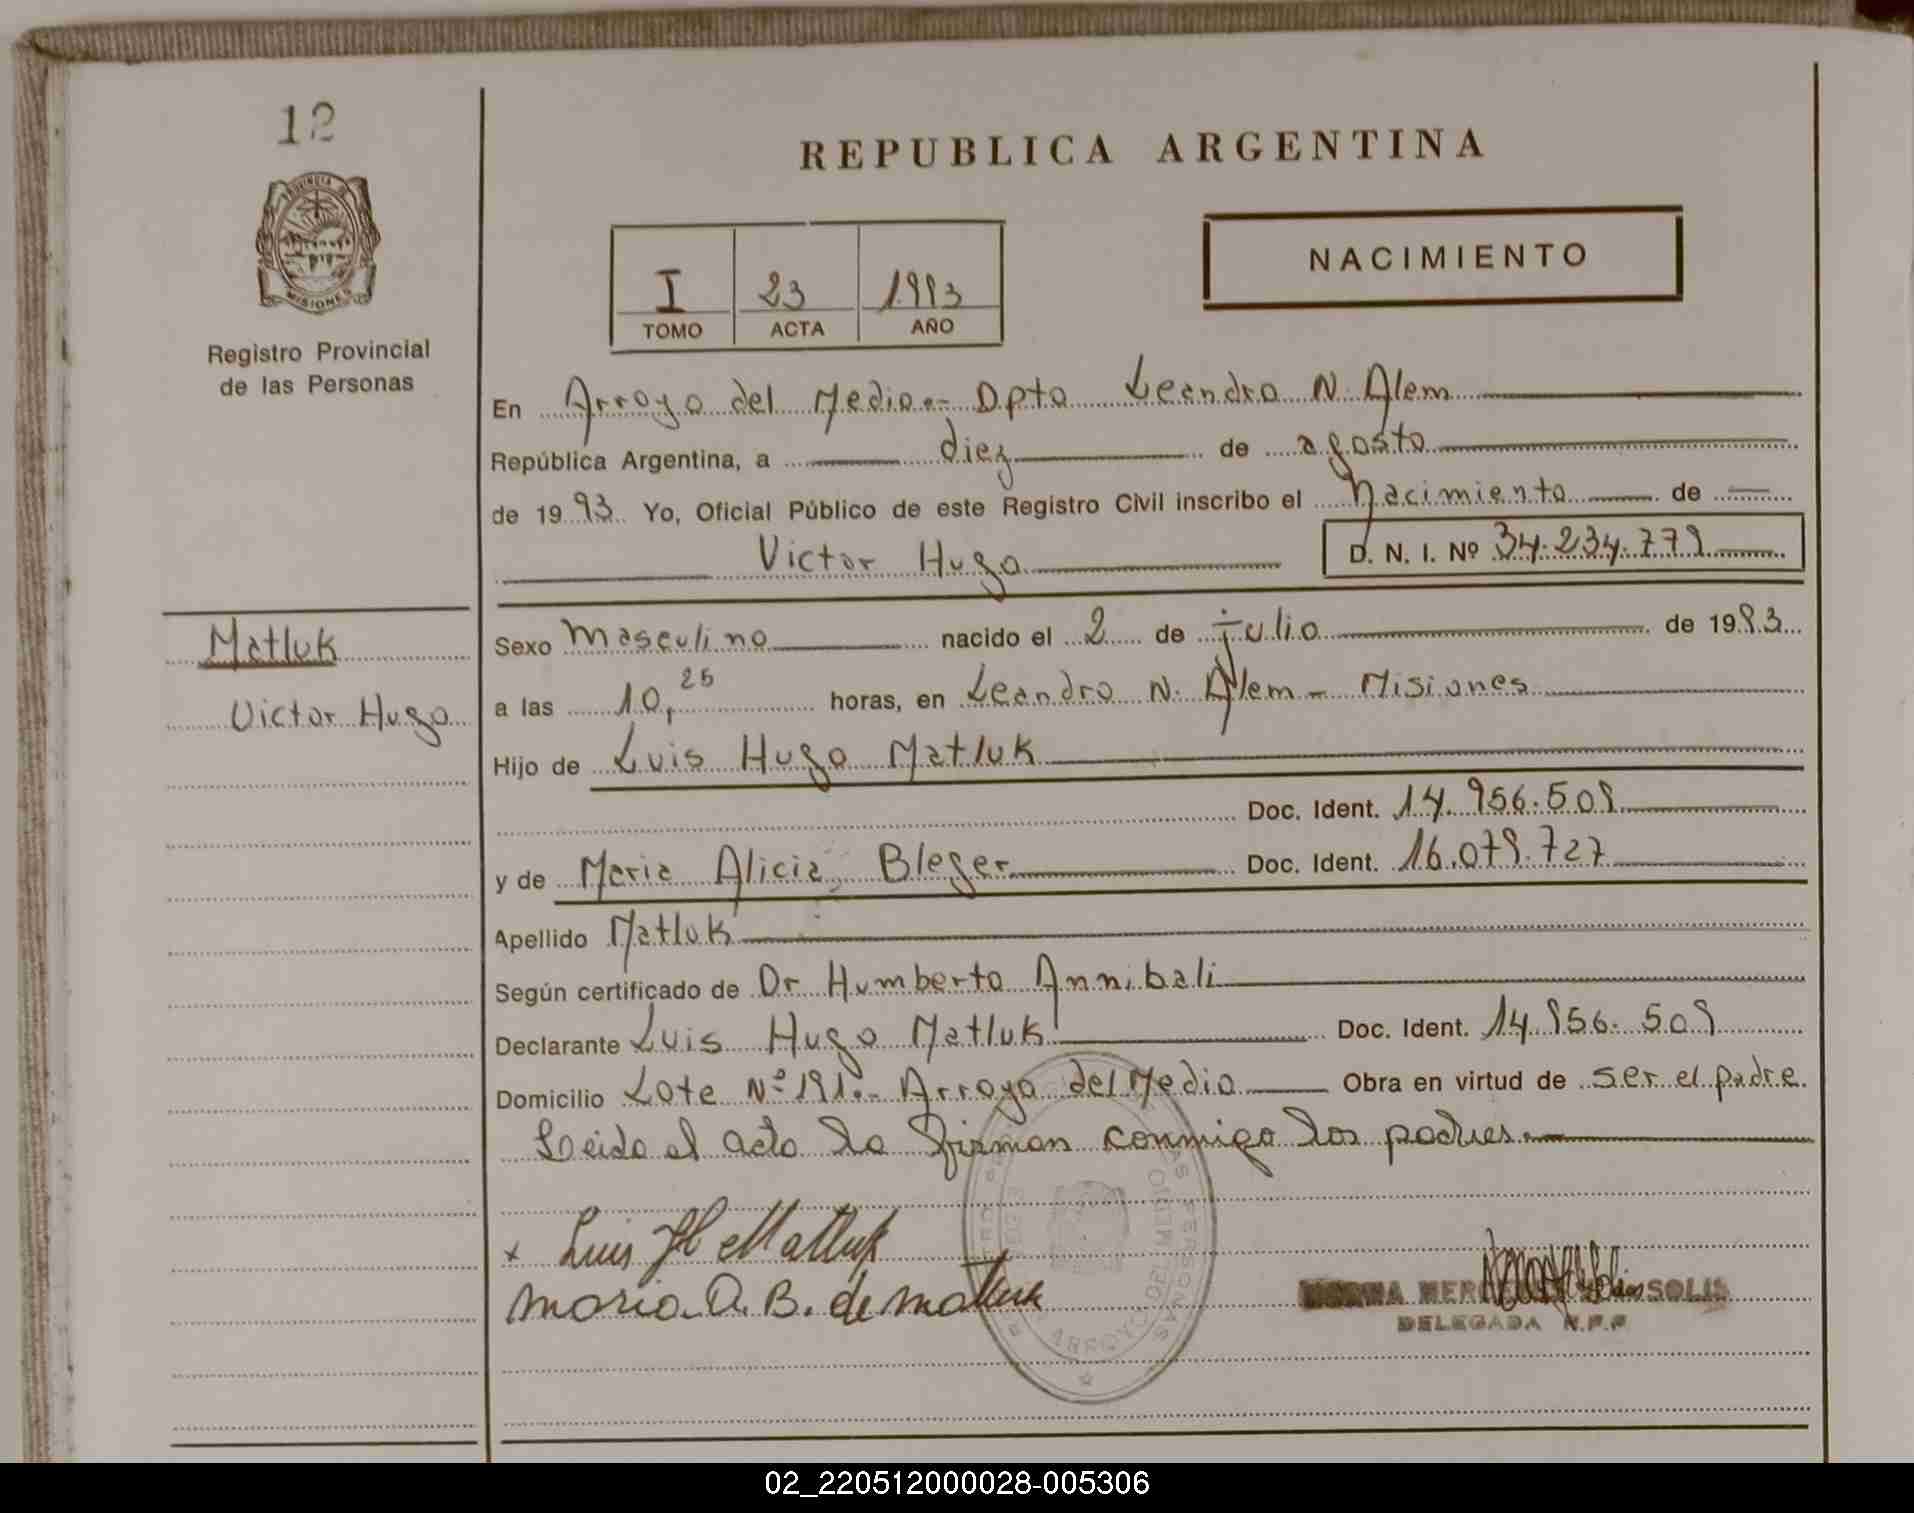 12
REPUBLICA ARGENTINA
PROVINCIA DE
MISIONES
Registro Provincial
de las Personas
I 23 1993
TOMO ACTA AÑO
NACIMIENTO
En Arroyo del Medio.- Dpto Leandro N. Alem
República Argentina, a diez de agosto
de 1993. Yo, Oficial Público de este Registro Civil inscribo el Nacimiento de
Victor Hugo D. N. I. Nº 34.234.779
Matluk
Victor Hugo
Sexo masculino nacido el 2 de julio de 1993
a las 10,25 horas, en Leandro N. Alem - Misiones
Hijo de Luis Hugo Matluk
Doc. Ident. 14.956.509
y de Maria Alicia Bleger Doc. Ident. 16.079.727
Apellido Matluk
Según certificado de Dr Humberto Annibali
Declarante Luis Hugo Matluk Doc. Ident. 14.956.509
Domicilio Lote Nº 191.- Arroyo del Medio Obra en virtud de ser el padre
Leido el acta la firman conmigo los padres.
x Luis H Matluk
Maria A. B. de Matluk
ARROYO DEL MEDIO
LAS PERSONAS
SOLIS
DELEGADA R.P.P
02_220512000028-005306